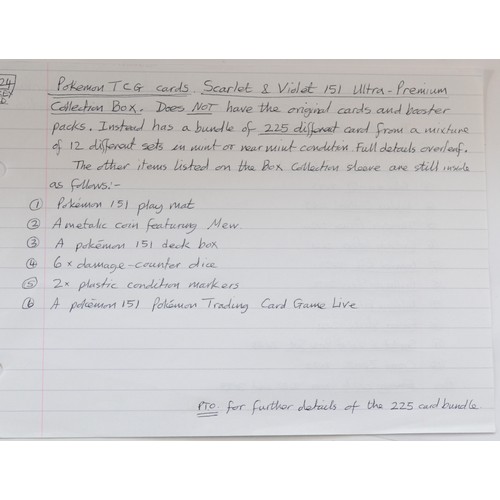 24
Pokemon TCG cards Scarlet & Violet 151 Ultra-Premium
Collection Box. Does NOT have the original cards and booster
packs. Instead has a bundle of 225 different card from a mixture
of 12 different sets in mint or near mint condition. Full details overleaf.
The other items listed on the Box Collection sleeve are still inside
as follows:-
① Pokémon 151 play mat
② A metalic coin featuring Mew
③ A pokémon 151 deck box
④ 6 x damage-counter dice
⑤ 2x plastic condition markers
⑥ A pokémon 151 Pokémon Trading Card Game Live
PTO for further details of the 225 card bundle.